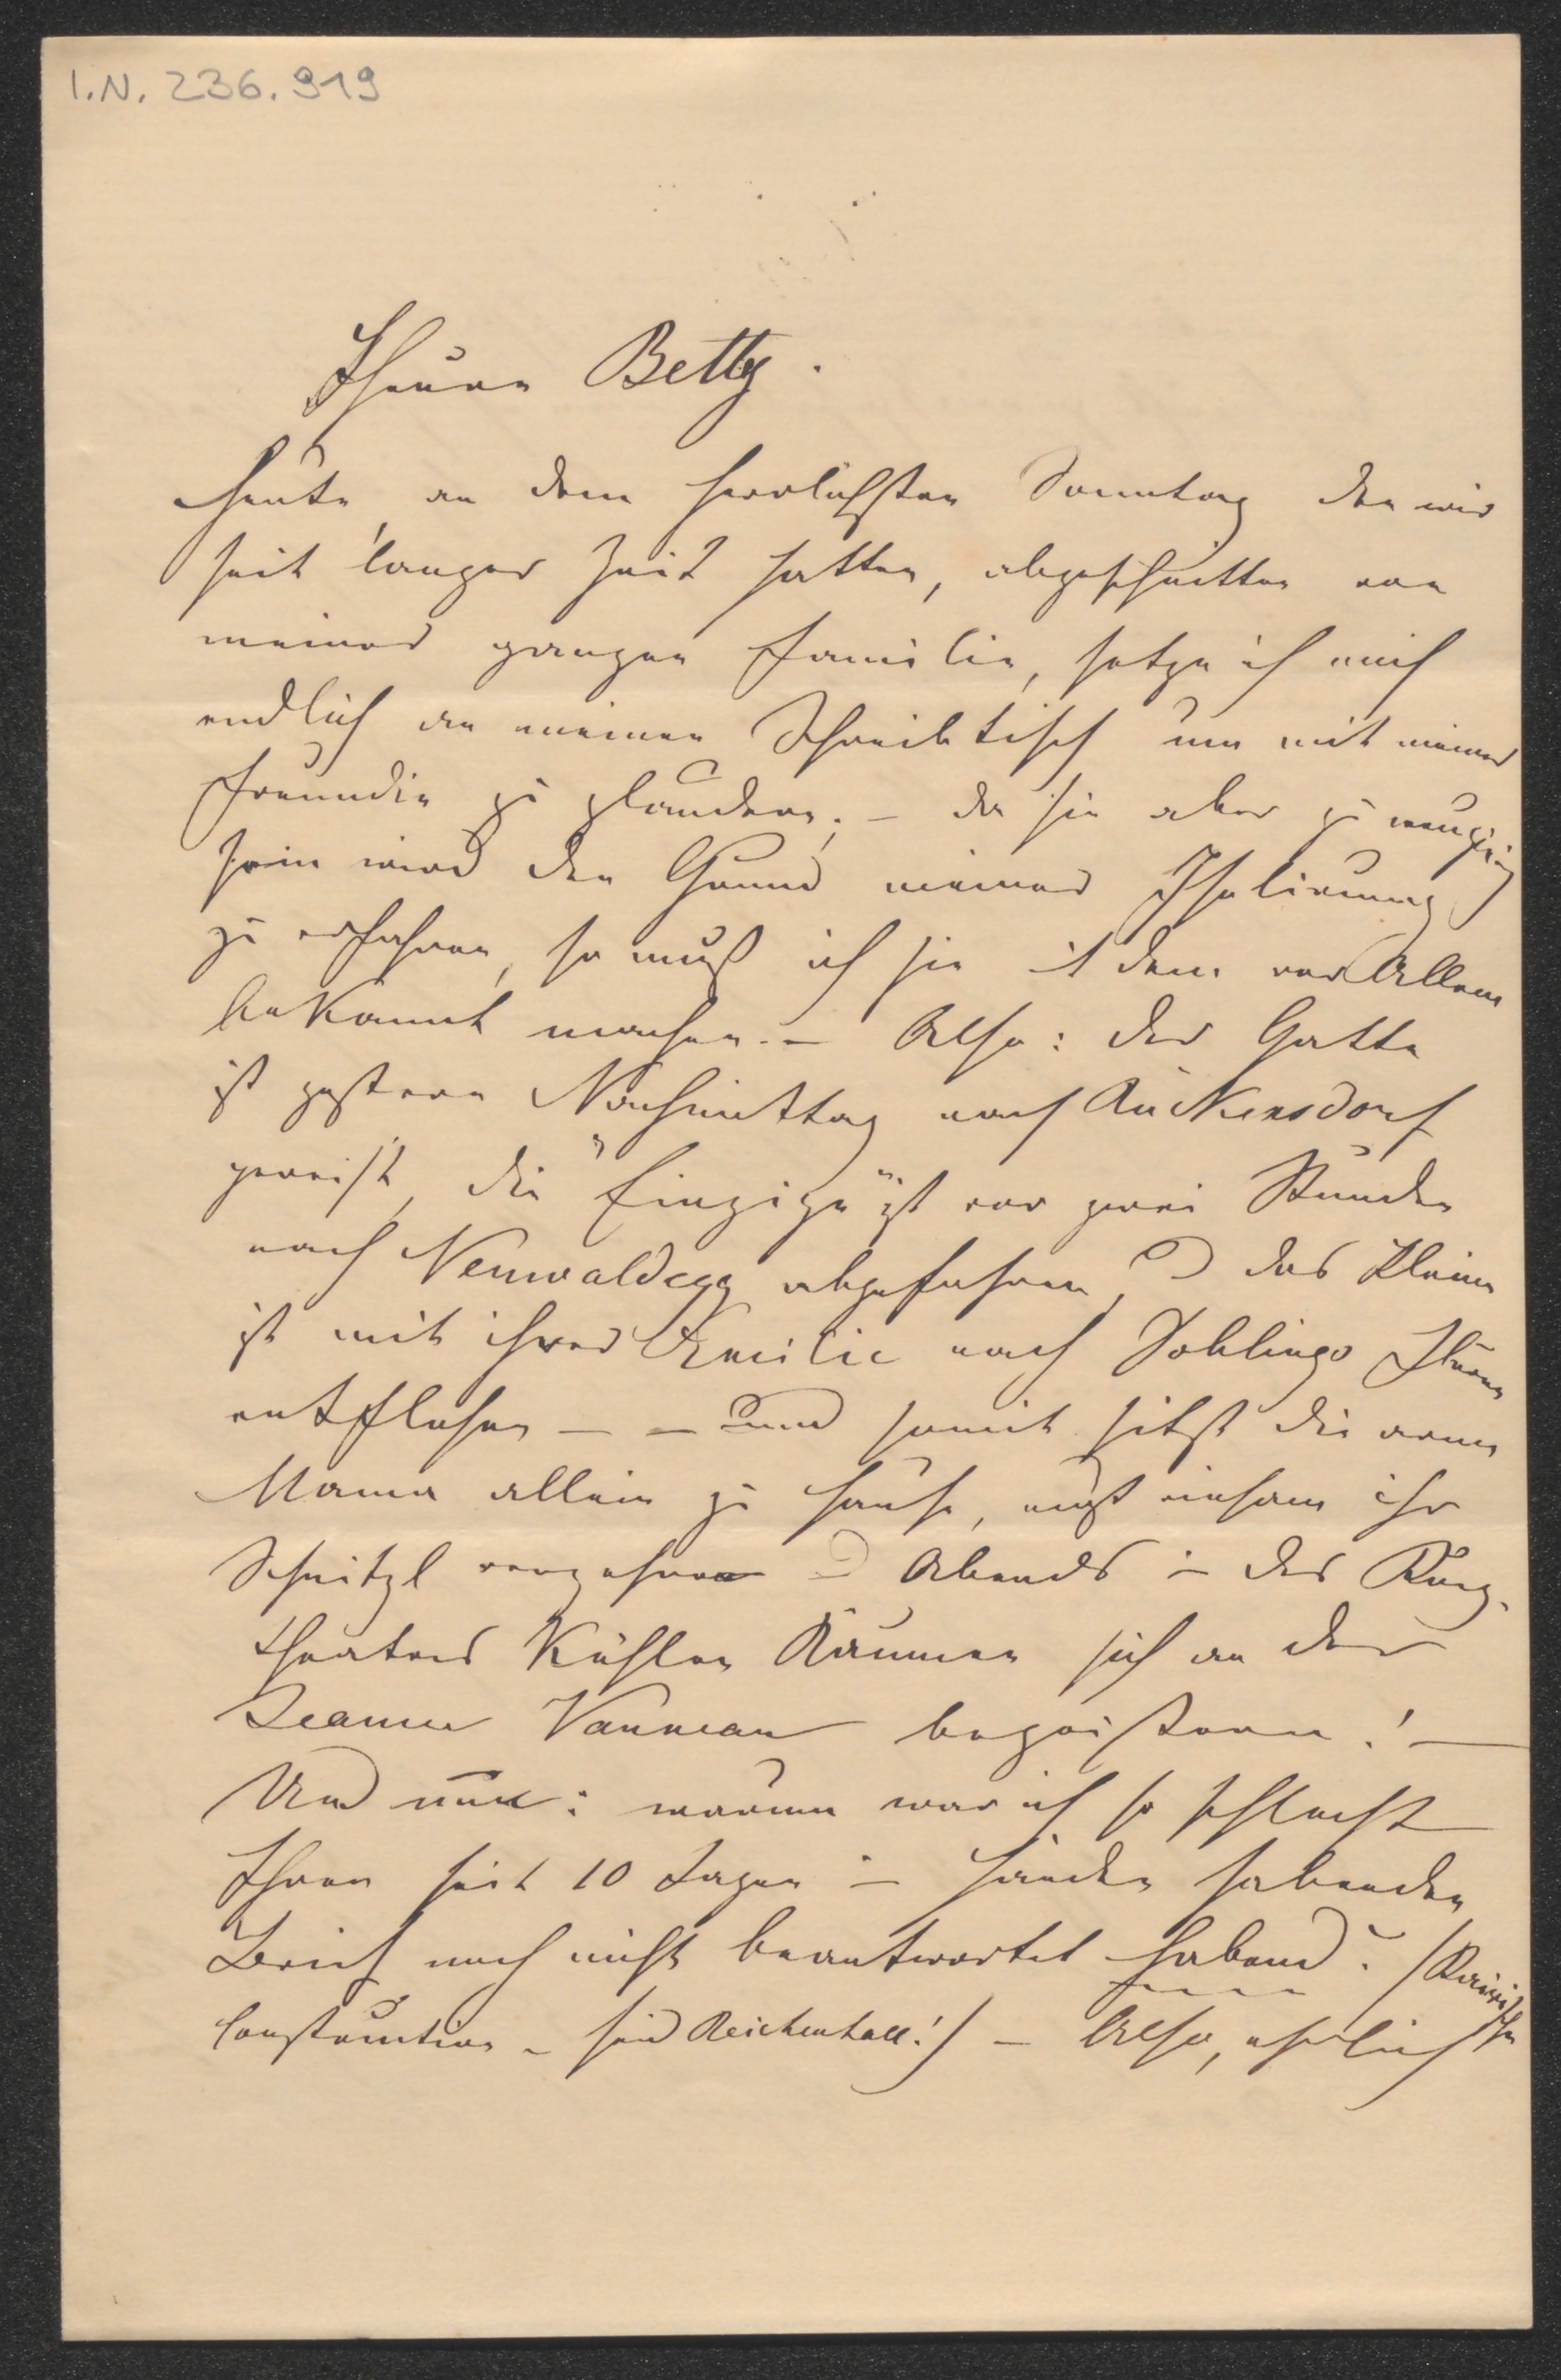 I.N. 236.919
Theure Betty.
Heute, an dem herrlichsten Sonntag den wir
seit langer Zeit hatten, abgeschnitten von
meiner ganzen Familie, setze ich mich
endlich an meinen Schreibtisch um mit meiner
Freundin zu plaudern; – da sie aber zu neugierig
sein wird den Grund meiner Isolierung
zu erfahren, so muß ich sie mit dem vor Allem
bekannt machen. – Also: der Gatte
ist gestern Nachmittag nach Rückersdorf
gereist, die "Einzige" ist vor zwei Stunden
nach Neuwaldegg abgefahren, u das Kleine
ist mit ihrer Emilie nach Döblings
entflohen – – und somit sitzt die arme
Mama allein zu Hause, muß einsam ihr
Schnitzl verzehren u Abends in des Burg-
theaters kühlen Räumen sich an der
Jeanne begeistern! –
Und nun: warum war ich so schlecht
Ihren seit 10 Tagen in Händen habenden
Brief noch nicht beantwortet habend? /
Construction – sind Reichenhall!/ – Also, ehrlich